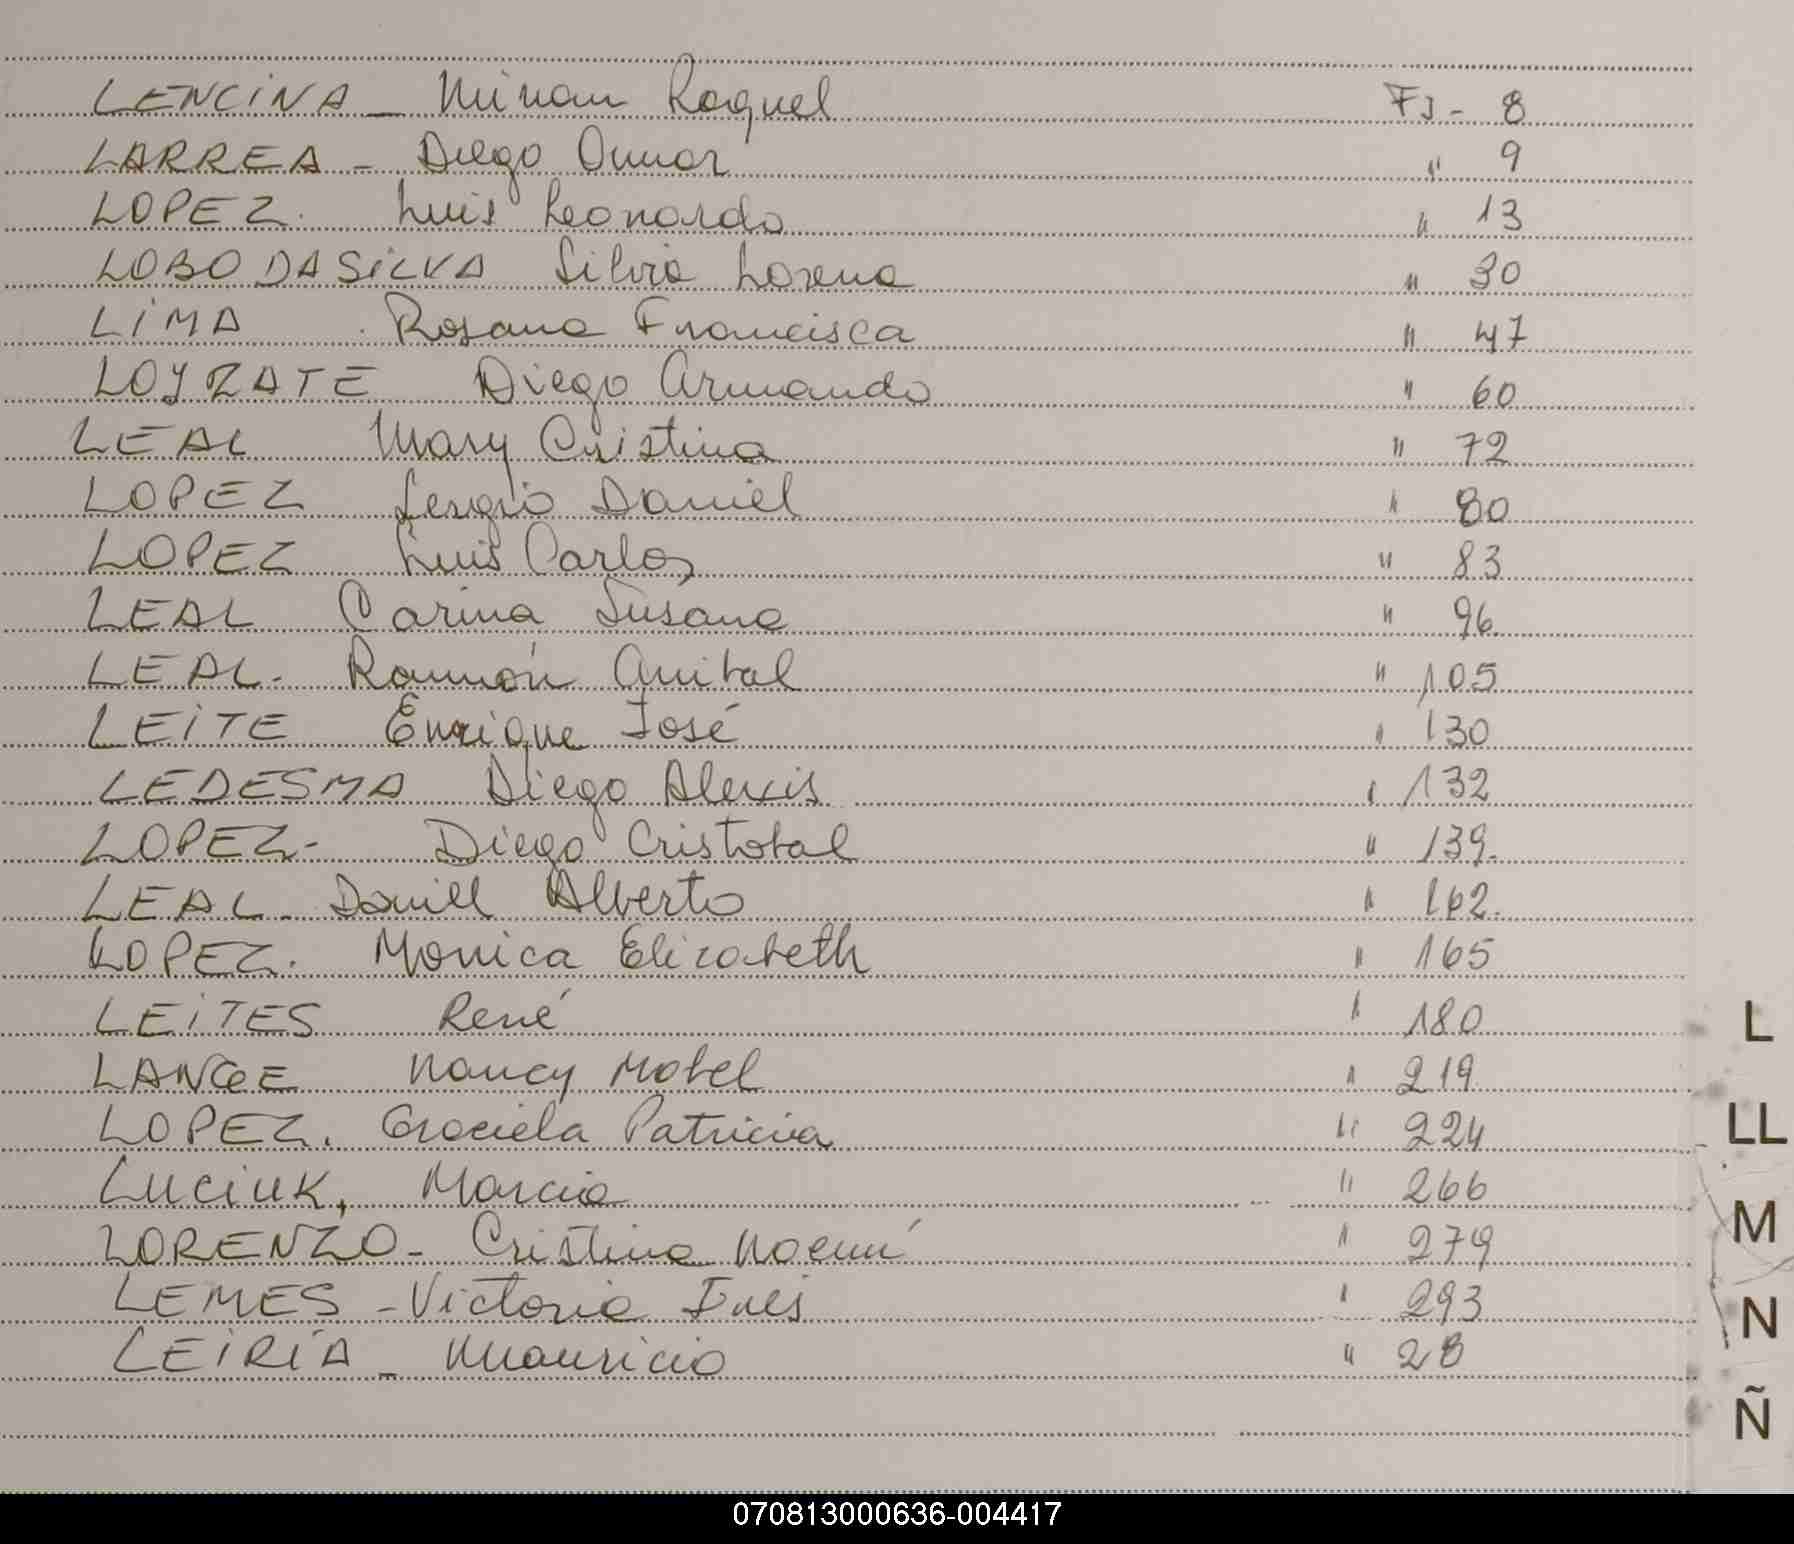 LENCINA - Mirian Raquel Fs - 8
LARREA - Diego Omar " 9
LOPEZ. Luis Leonardo " 13
LOBO DA SILVA Silvia Lorena " 30
LIMA Rosana Francisca " 47
LOYZATE Diego Armando " 60
LEAL Mary Cristina " 72
LOPEZ Sergio Daniel " 80
LOPEZ Luis Carlos " 83
LEAL Carina Susana " 96
LEAL - Ramón Anibal " 105
LEITE Enrique José " 130
LEDESMA Diego Alexis " 132
LOPEZ - Diego Cristobal " 139.
LEAL - Daniel Alberto " 162.
LOPEZ. Monica Elizabeth " 165
LEITES René " 180
LANGE Nancy Mabel " 219
LOPEZ. Graciela Patricia " 224
LUCIUK, Marcia " 266
LORENZO - Cristina Noemí " 279
LEMES - Victoria Inés " 293
LEIRÍA - Mauricio " 28
L
LL
M
N
Ñ
070813000636-004417